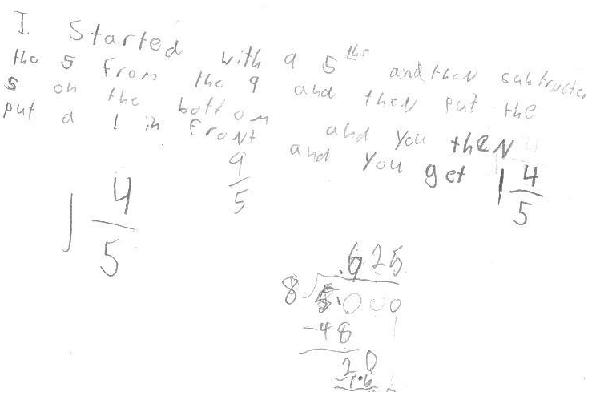 I. Started with 9 5ths and then subtracted
the 5 from the 9 and then put the
5 on the bottom and you then
put a 1 in front and you get 1 4/5
9/5
1 4/5
.625
8 5.000
-48
20
-16